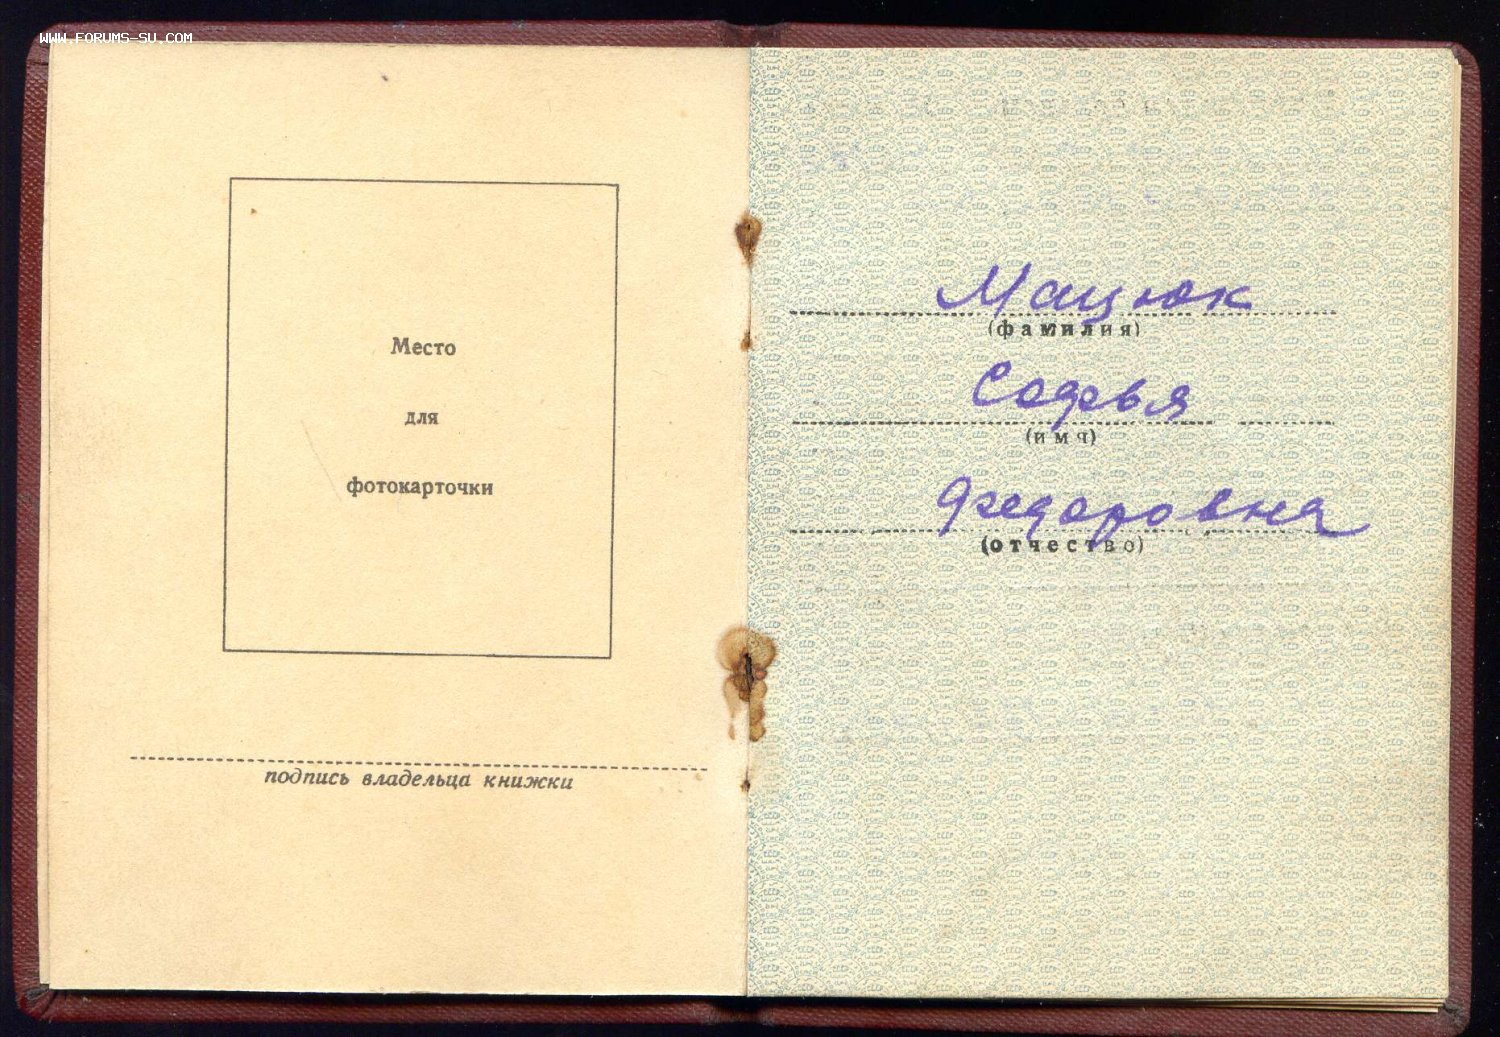 WWW.FORUMS-SU.COM
Место
для
фотокарточки
подпись владельца книжки
Мацюк
(фамилия)
Софья
(имя)
Федоровна
(отчество)